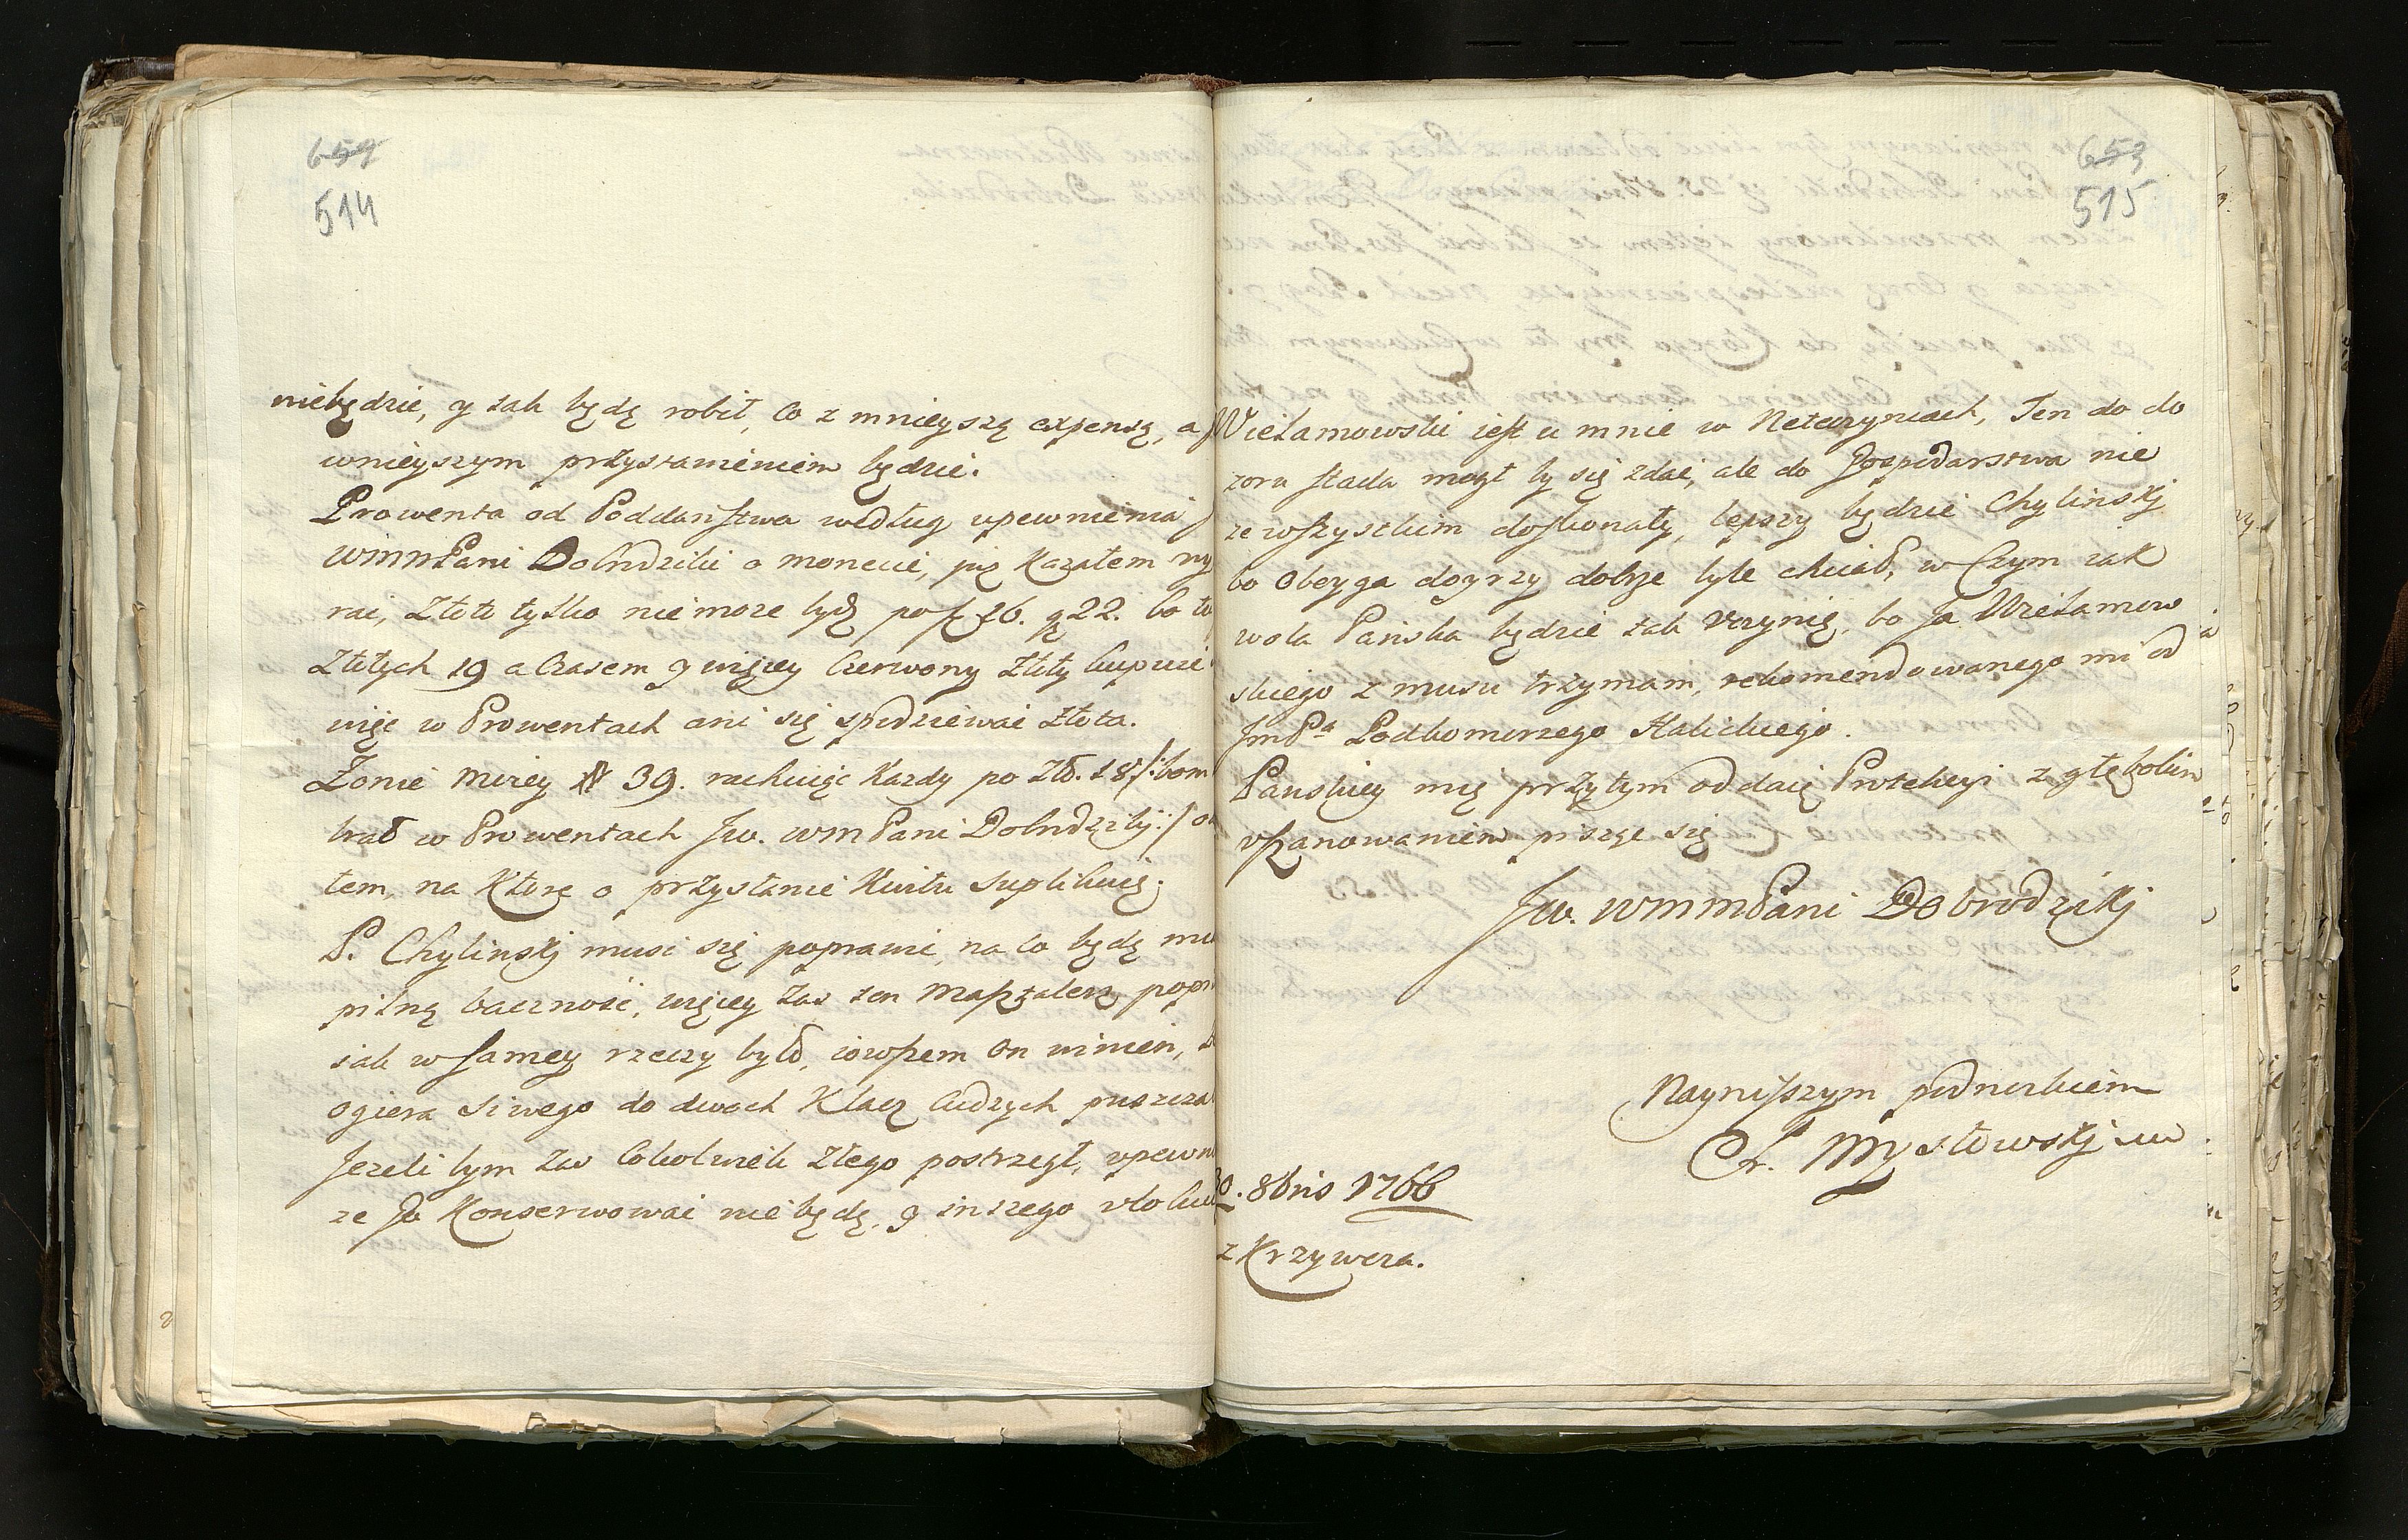 659
514
niebędzie, y tak będę robił, co z mnieyszą expensą, a
wnieyszym przystawieniem będzie.
Prowenta od Poddanstwa według upewnienia
WMMPani Dobrodziki o monecie, już kazałem wy
rai, Złoto tylko niemoże bydź po 16. 22. bo tu
Złotych 19 a Czasem y więcey Czerwony Złoty kupuie
więc w Prowentach ani się spodziewać Złota.
Żonie moiey # 39. rachuiąc Każdy po Zło. 18 /: bom
brał w Prowentach Jw. WMPani Dobrodziki :/ o
łem, na Które o przysłanie Kwitu supplikuię.
P. Chylinskj musi się poprawić, na co będę mi
pilną baczność, więcey zaś ten Masztalerz popr
iak w samey rzeczy było, iowszem on winien,
ogiera siwego do dwoch Klacz Cudzych puszcza
Jeżeli bym zaś Cokolwiek złego postrzegł, upewn
że Jo Konserwować niebędę, y inszego uloku
653
515
Wieżamowski iest u mnie w Neteczyncach, Ten do do
zoru stada mogł by się zdać, ale do Gospodarstwa nie
ze wszystkim doskonały, lepszy będzie Chylinskj
bo oboyga doyrzy dobrze byle chciał, w Czym iak
wola Pańska będzie tak uczynię, bo Ja Wieżamow
skiego z musu trzymam, rekomendowanego mi od
JmPa Podkomorzego Halickiego.
Pańskiey mię przytym oddaię Protekcyi z głębokim
uszanowaniem piszę się
Jw. WMMPani Dobrodzikj
Nayniższym podnożkiem
Mysłowskj mp
30. 8bris 1766
z Krzywcza.